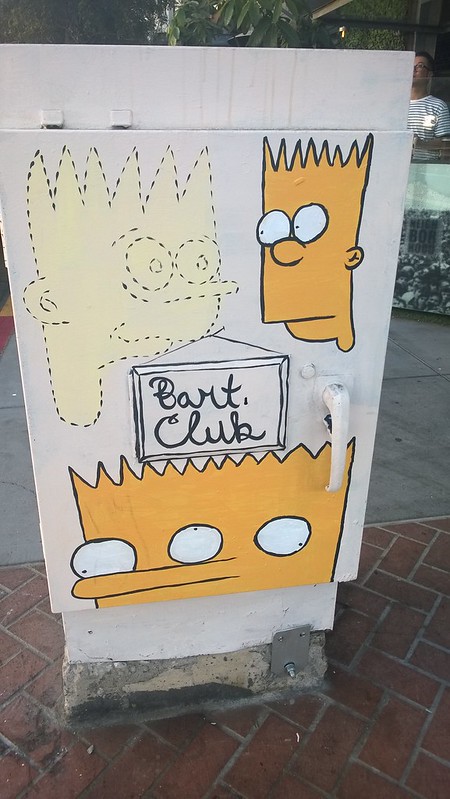 Bart.
Club